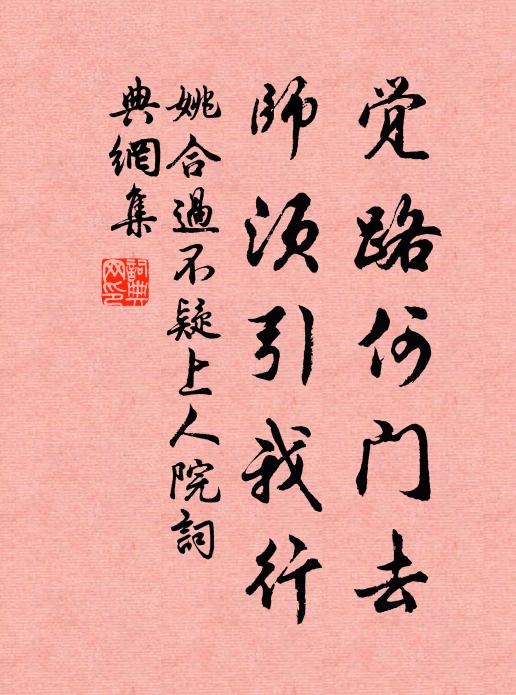 觉路何门去
師须引我行
姚合過不疑上人院詞
典網集
詞典
网印